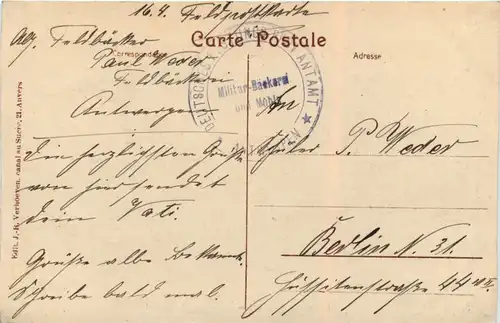 16.4. Feldpostkarte
Carte Postale
Correspondance
Adresse
Abs. Feldbäcker
Paul Weder
Feldbäckerei
Antwerpen
Die herzlichsten Grüße
von hier sendet
dein Vati.
Grüße alle bekannt.
Schreibe bald mal.
DEUTSCHES PROVIANTAMT
Militär-Bäckerei
und Mehl
An
Schüler P. Weder
Berlin N. 31.
Hussitenstraße 44
Edit. J.-B. Verhoeven, canal au Sucre, 21, Anvers